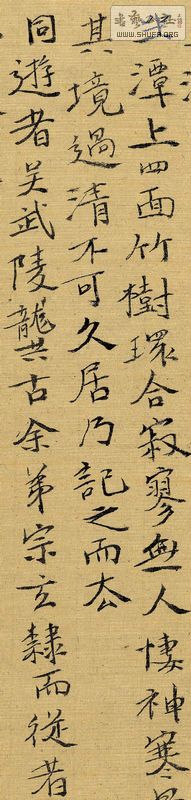 潭上四面竹樹環合寂寥無人悽神寒
其境過清不可久居乃記之而去
同遊者吴武陵龔古余弟宗玄隸而從者
WWW.SHUFA.ORG